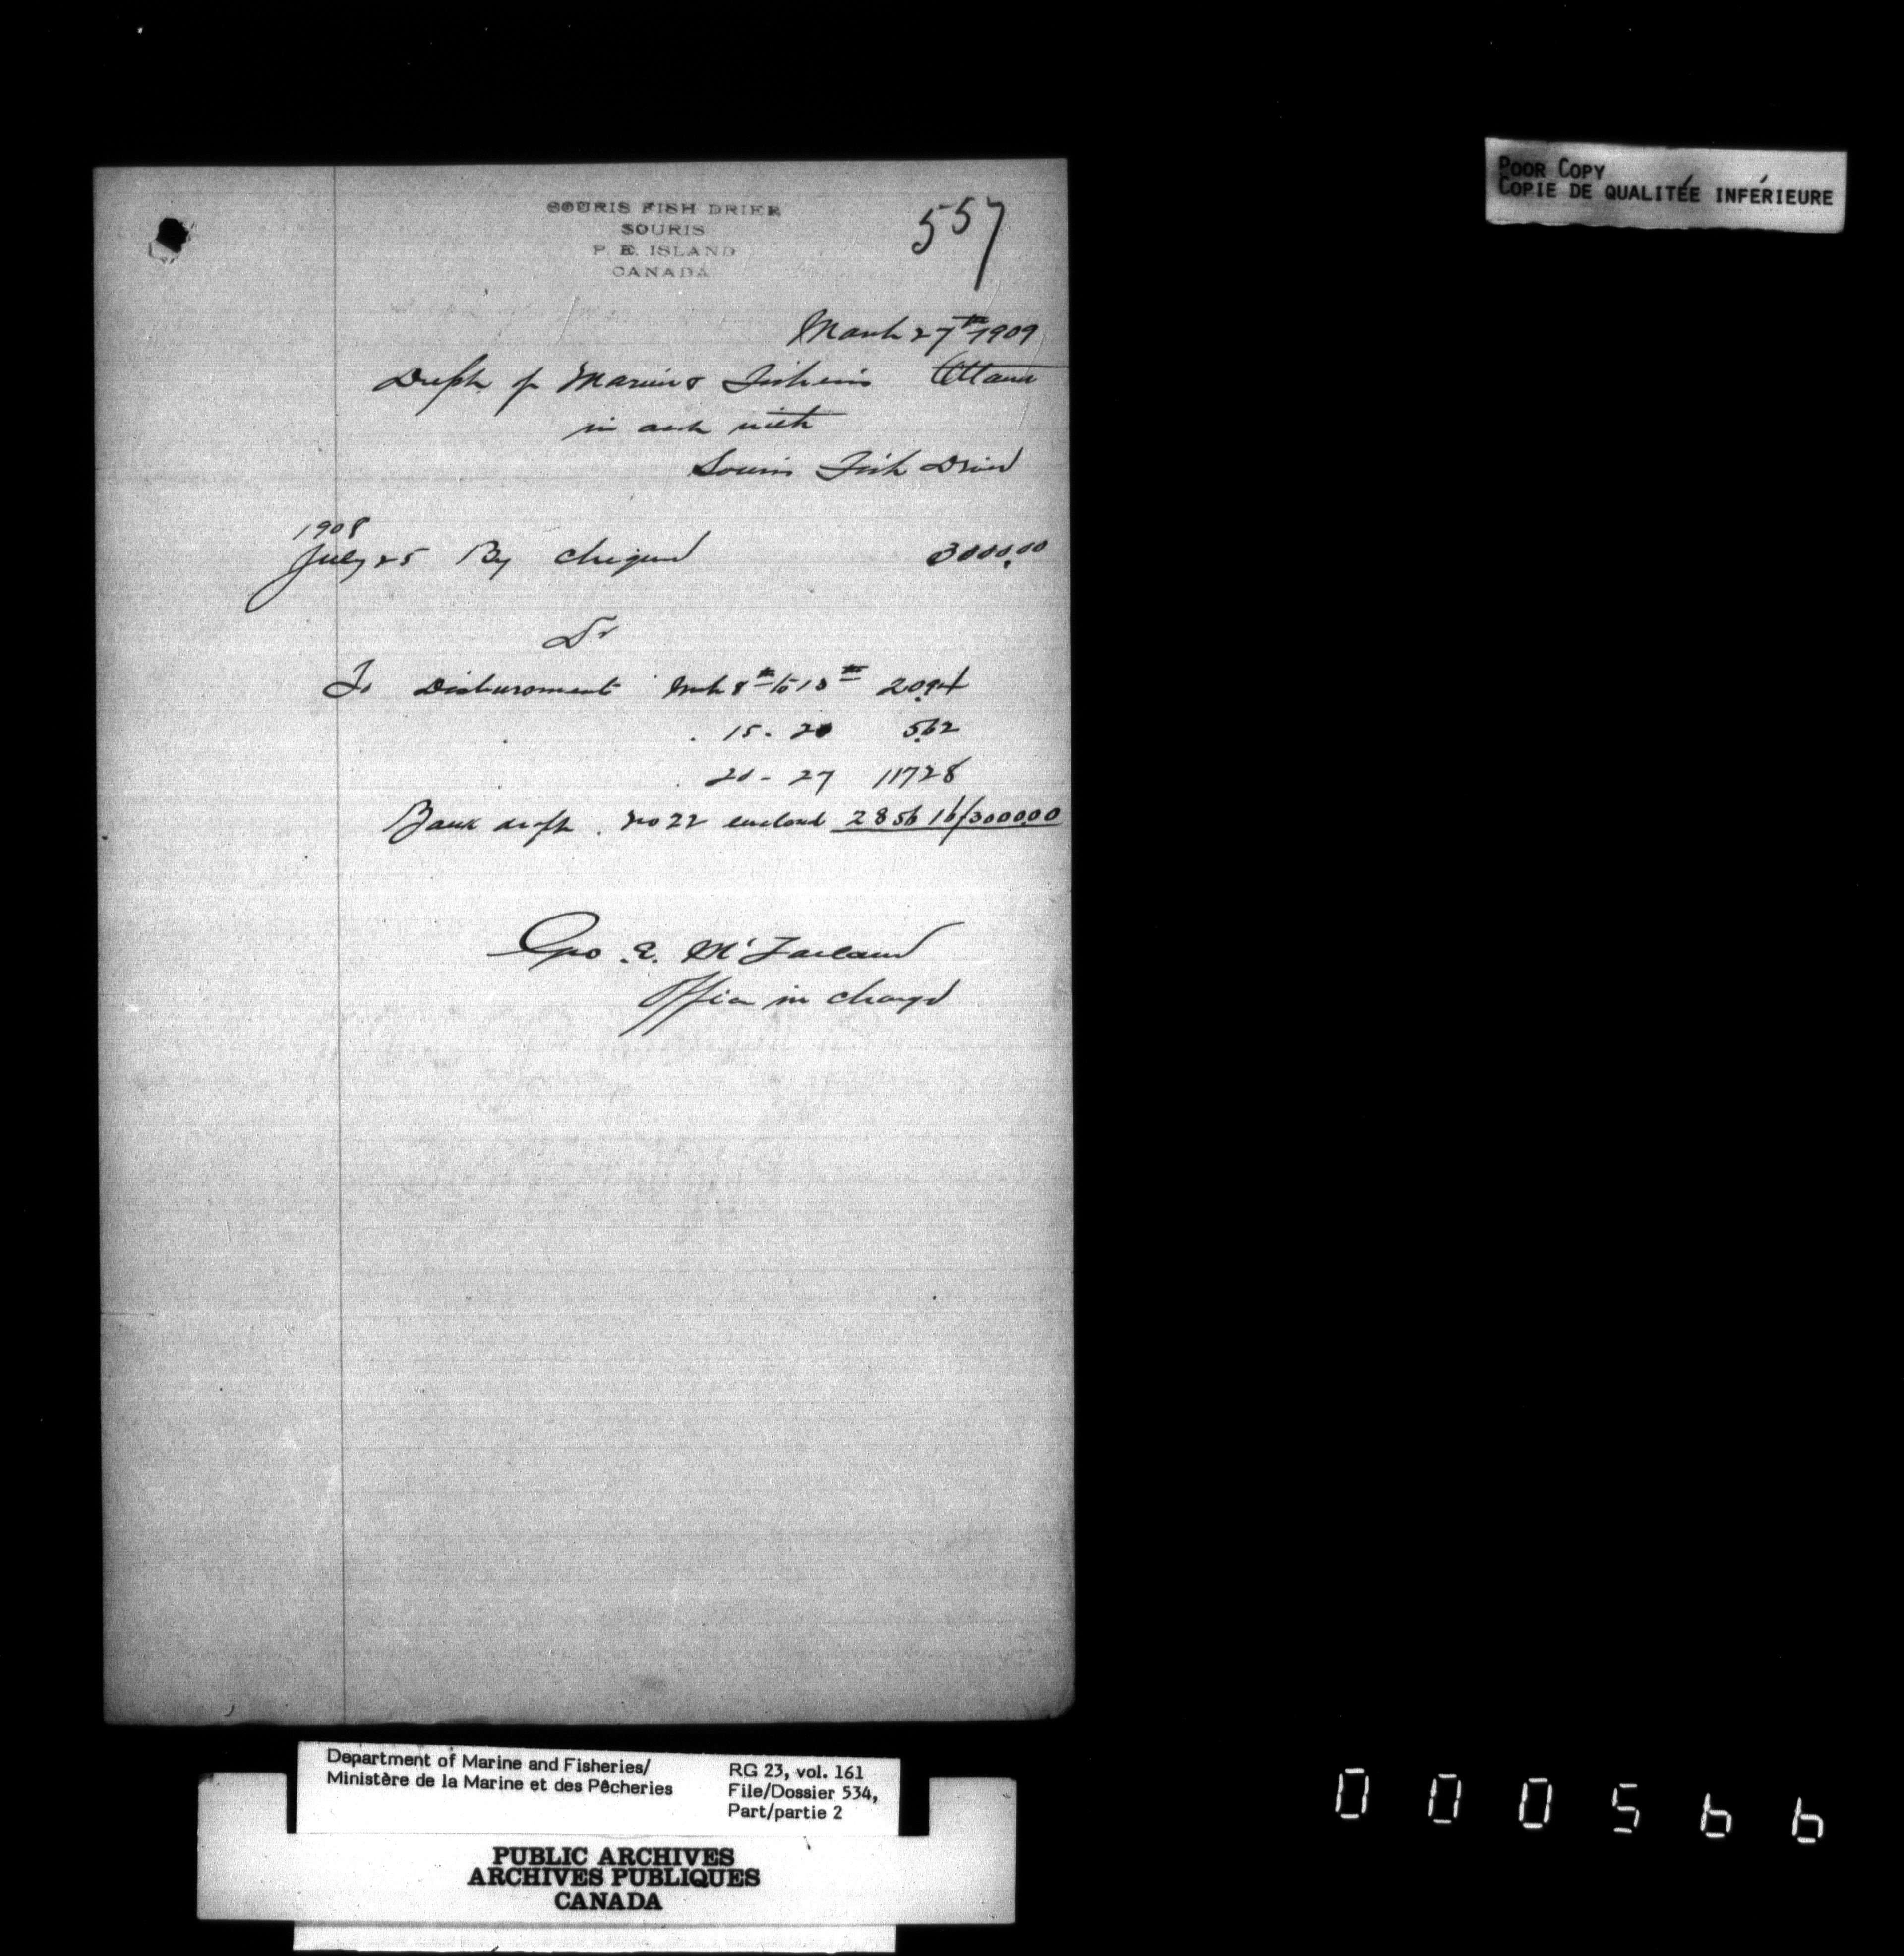 POOR COPY
COPIE DE QUALITÉE INFÉRIEURE
SOURIS FISH DRIER
SOURIS
P. E. ISLAND
CANADA
557
March 27th 1909
Dept of Marine & Fisheries Ottawa
in acct with
Souris Fish Drier
1908
July 25 By cheque 3000.00
Dr
To Disbursement Mch 8th to 13th 20.94
15 - 20 5.62
20 - 27 117 28
Bank draft no 22 enclosed 2856 16/3000.00
Geo. E. McFarland
Officer in charge
Department of Marine and Fisheries/
Ministère de la Marine et des Pêcheries
RG 23, vol. 161
File/Dossier 534,
Part/partie 2
PUBLIC ARCHIVES
ARCHIVES PUBLIQUES
CANADA
000566